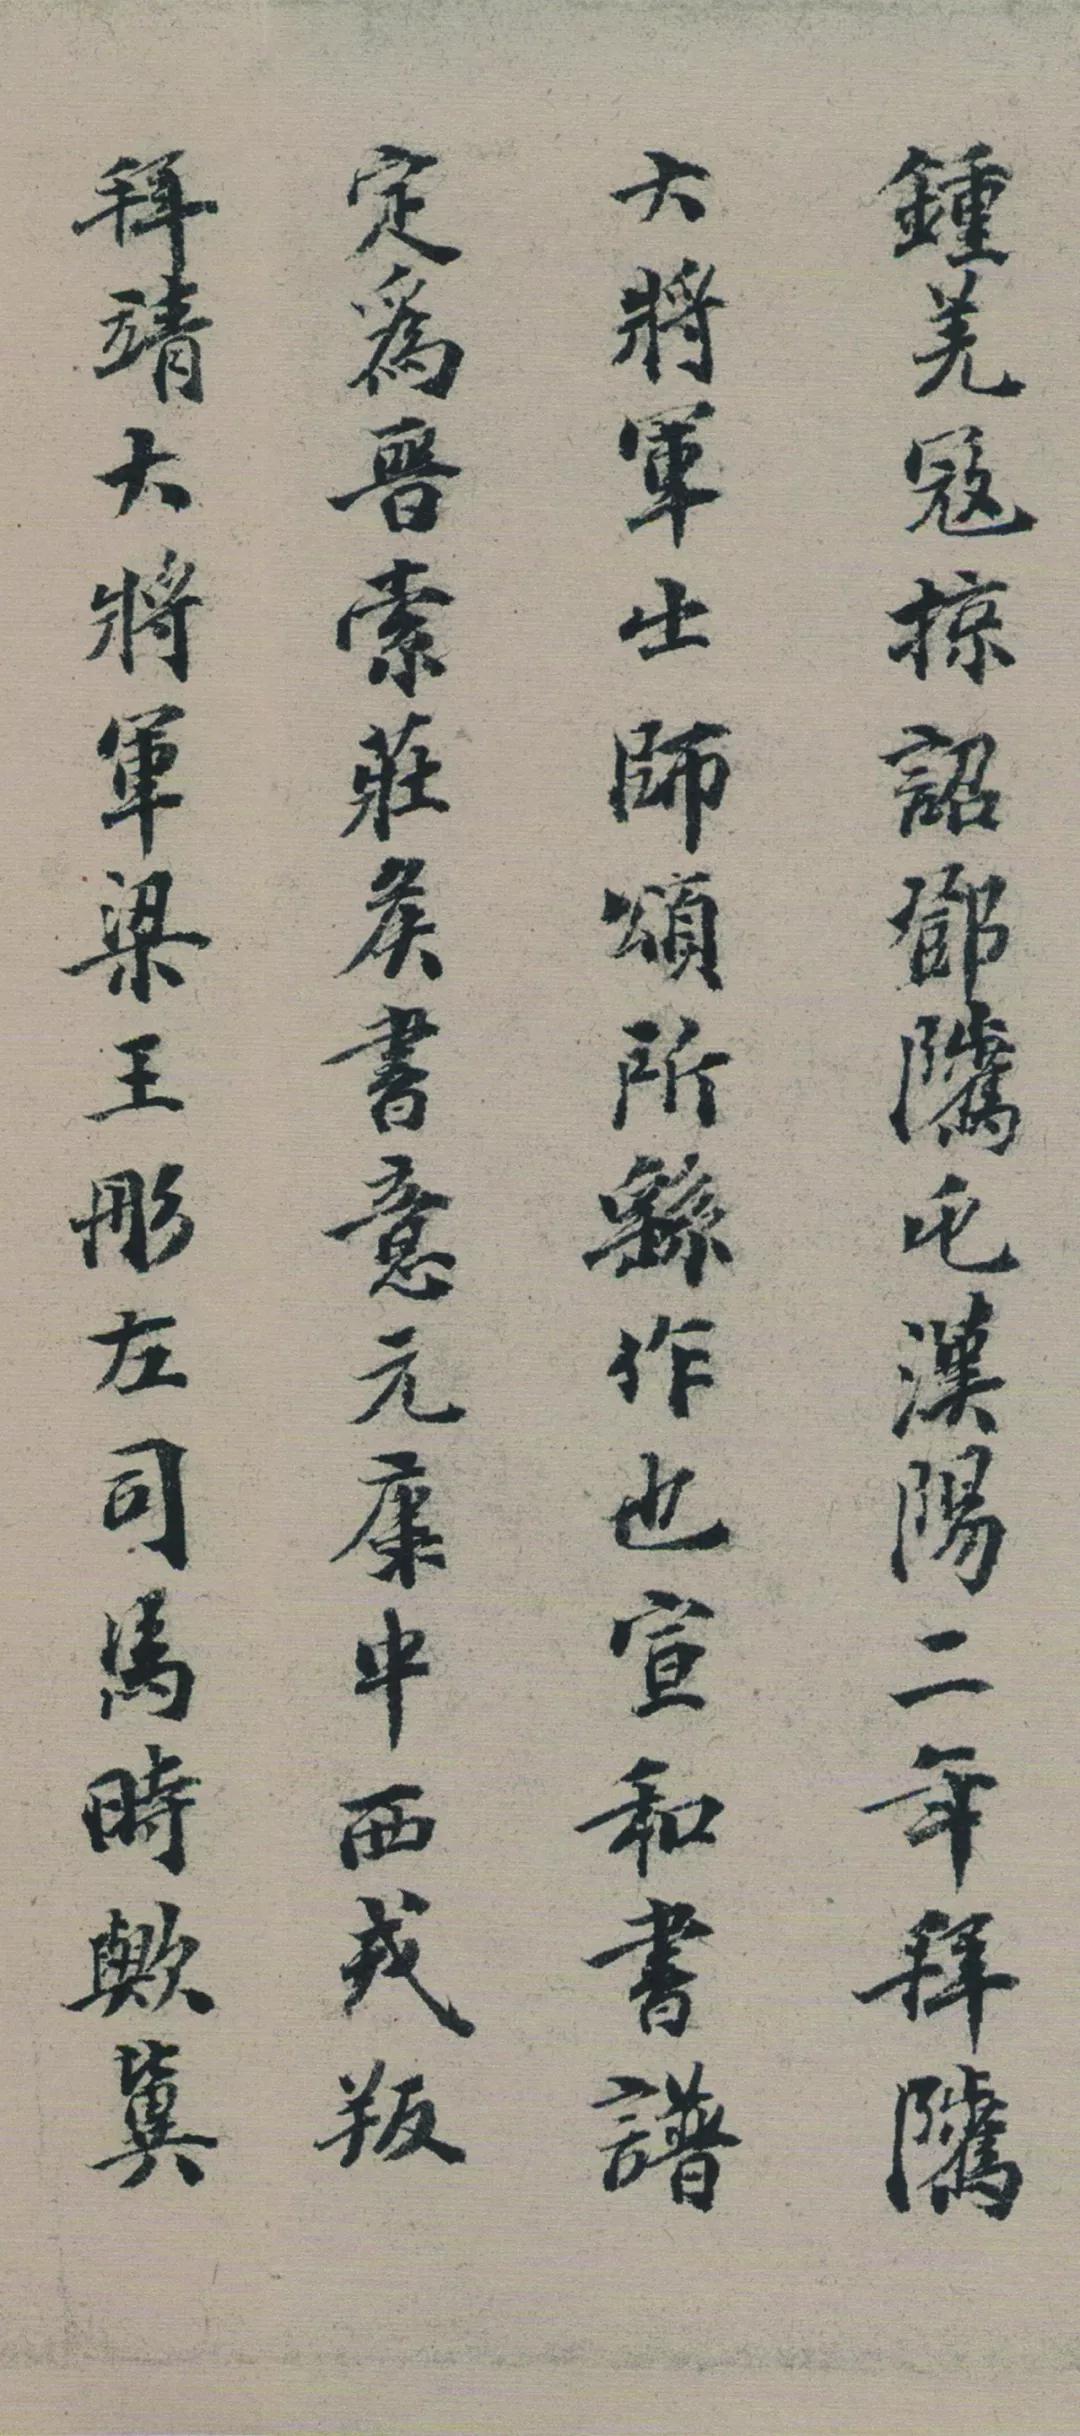 鍾羌寇掠詔鄧隲屯漢陽二年拜隲
大將軍出師頌所繇作也宣和書譜
定為晉索莊矦書意元康中西戎叛
拜靖大將軍梁王肜左司馬時歟冀